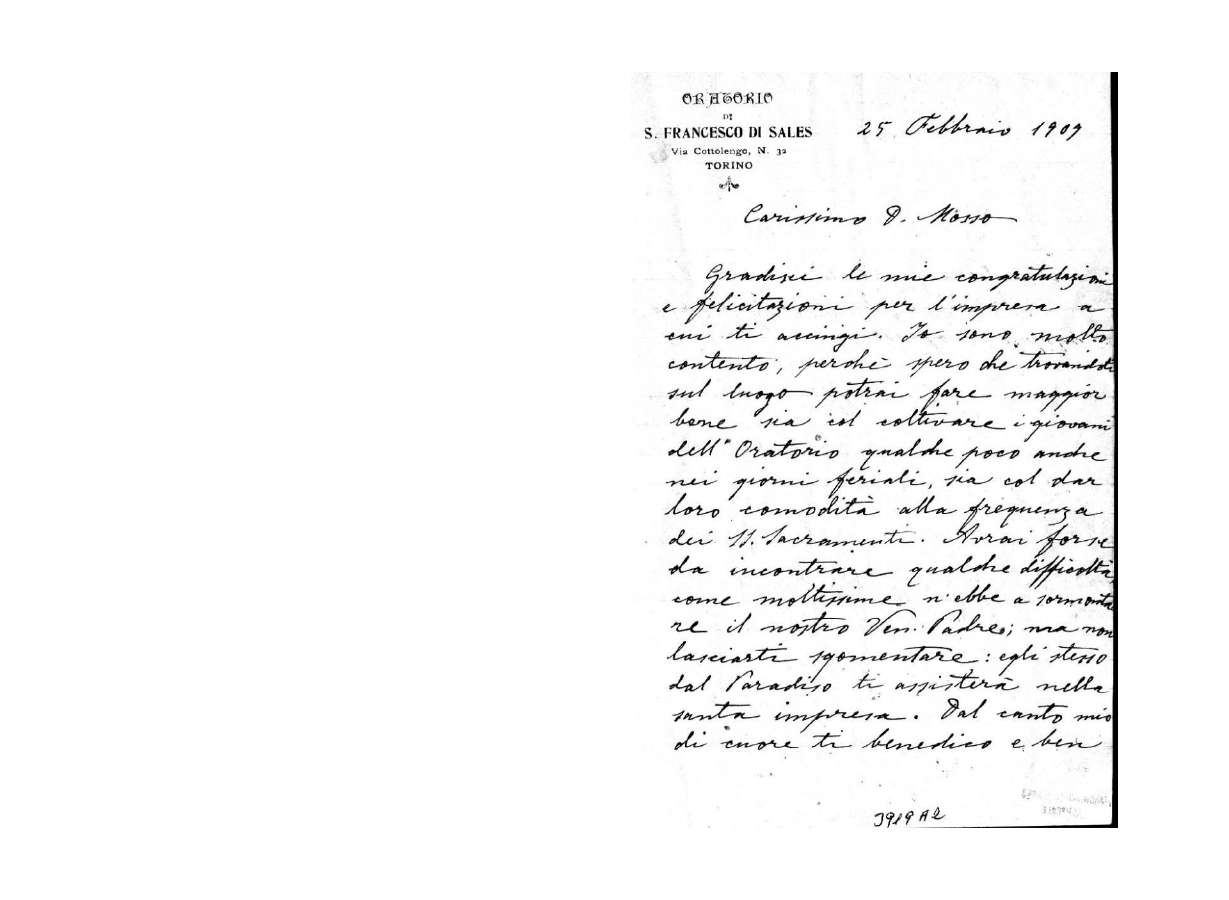 ORATORIO
DI
S. FRANCESCO DI SALES
Via Cottolengo, N. 32
TORINO
25 Febbraio 1909
Carissimo D. Mosso
Gradisci le mie congratulazioni
e felicitazioni per l'impresa a
cui ti accingi. Io sono molto
contento, perchè spero che trovandoti
sul luogo potrai fare maggior
bene sia col coltivare i giovani
dell'Oratorio qualche poco anche
nei giorni feriali, sia col dar
loro comodità alla frequenza
dei SS. Sacramenti. Avrai forse
da incontrare qualche difficoltà
come moltissime n'ebbe a sormonta
re il nostro Ven. Padre; ma non
lasciarti sgomentare: egli stesso
dal Paradiso ti assisterà nella
santa impresa. Dal canto mio
di cuore ti benedico e ben